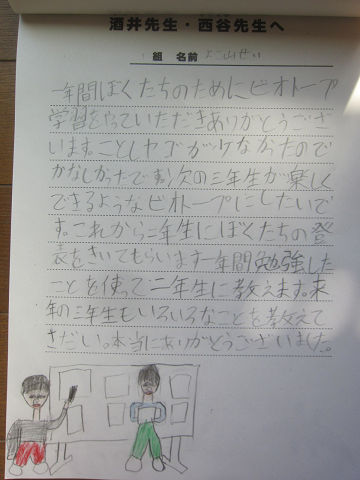 酒井先生・西谷先生へ
組 名前 よこ山せい
一年間ぼくたちのためにビオトープ
学習をやっていただきありがとうござ
います。ことしヤゴがいなかったので
かなしかったです。次の三年生が楽しく
できるようなビオトープにしたいで
す。これから二年生にぼくたちの登
表をきいてもらいます一年間勉強した
ことを使って二年生に教えます。来
年の三年生もいろいろなことを教えて
さだい。本当にありがとうございました。